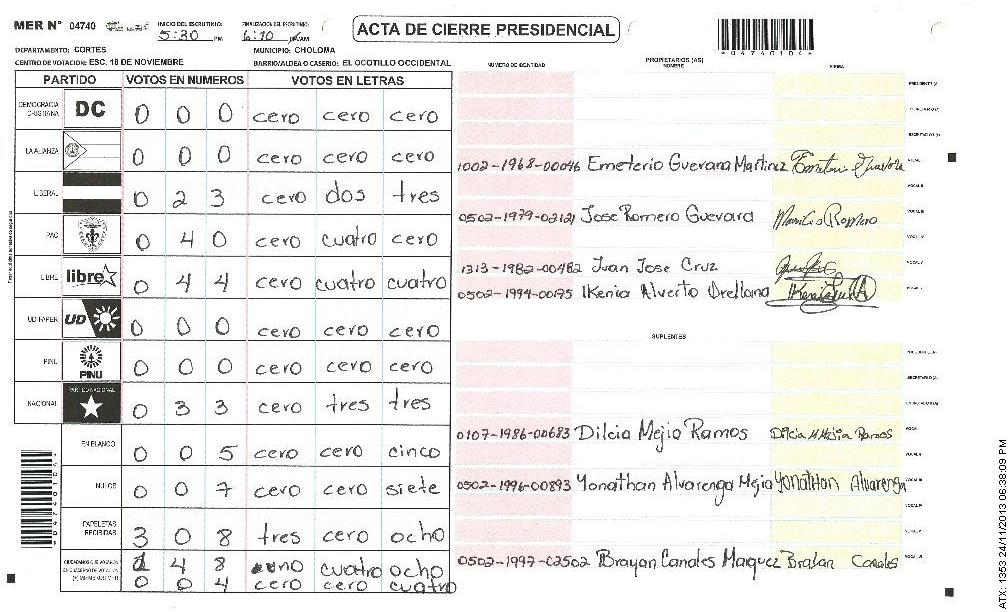 MER N° 04740 INICIO DEL ESCRUTINIO: 5:30 PM FINALIZACION DEL ESCRUTINIO: 6:10 PM/AM ACTA DE CIERRE PRESIDENCIAL
DEPARTAMENTO: CORTES MUNICIPIO: CHOLOMA
CENTRO DE VOTACION: ESC. 18 DE NOVIEMBRE BARRIO/ALDEA O CASERIO: EL OCOTILLO OCCIDENTAL
*04740104*
PARTIDO VOTOS EN NUMEROS VOTOS EN LETRAS
DEMOCRACIA CRISTIANA DC 0 0 0 cero cero cero
LA ALIANZA 0 0 0 cero cero cero
LIBERAL 0 2 3 cero dos tres
PAC 0 4 0 cero cuatro cero
LIBRE libre 0 4 4 cero cuatro cuatro
UD-FAPER UD 0 0 0 cero cero cero
PINU PINU 0 0 0 cero cero cero
NACIONAL PARTIDO NACIONAL 0 3 3 cero tres tres
EN BLANCO 0 0 5 cero cero cinco
NULOS 0 0 7 cero cero siete
PAPELETAS RECIBIDAS 3 0 8 tres cero ocho
1 4 8 uno cuatro ocho
0 0 4 cero cero cuatro
NUMERO DE IDENTIDAD PROPIETARIOS (AS) NOMBRE FIRMA
1002-1968-00046 Emeterio Guevara Martinez
0502-1979-02121 Jose Romero Guevara
1313-1982-00482 Juan Jose Cruz
0502-1994-00195 IKenia Alverto Orellana
SUPLENTES
0107-1986-00683 Dilcia Mejia Ramos Dilcia M Mejia Ramos
0502-1996-00893 Yonathan Alvarenga Mejia Yonathan Alvarenga
0502-1997-02502 Brayan Canales Maquez Braian Canales
ATX: 1353 24/11/2013 06:38:09 PM